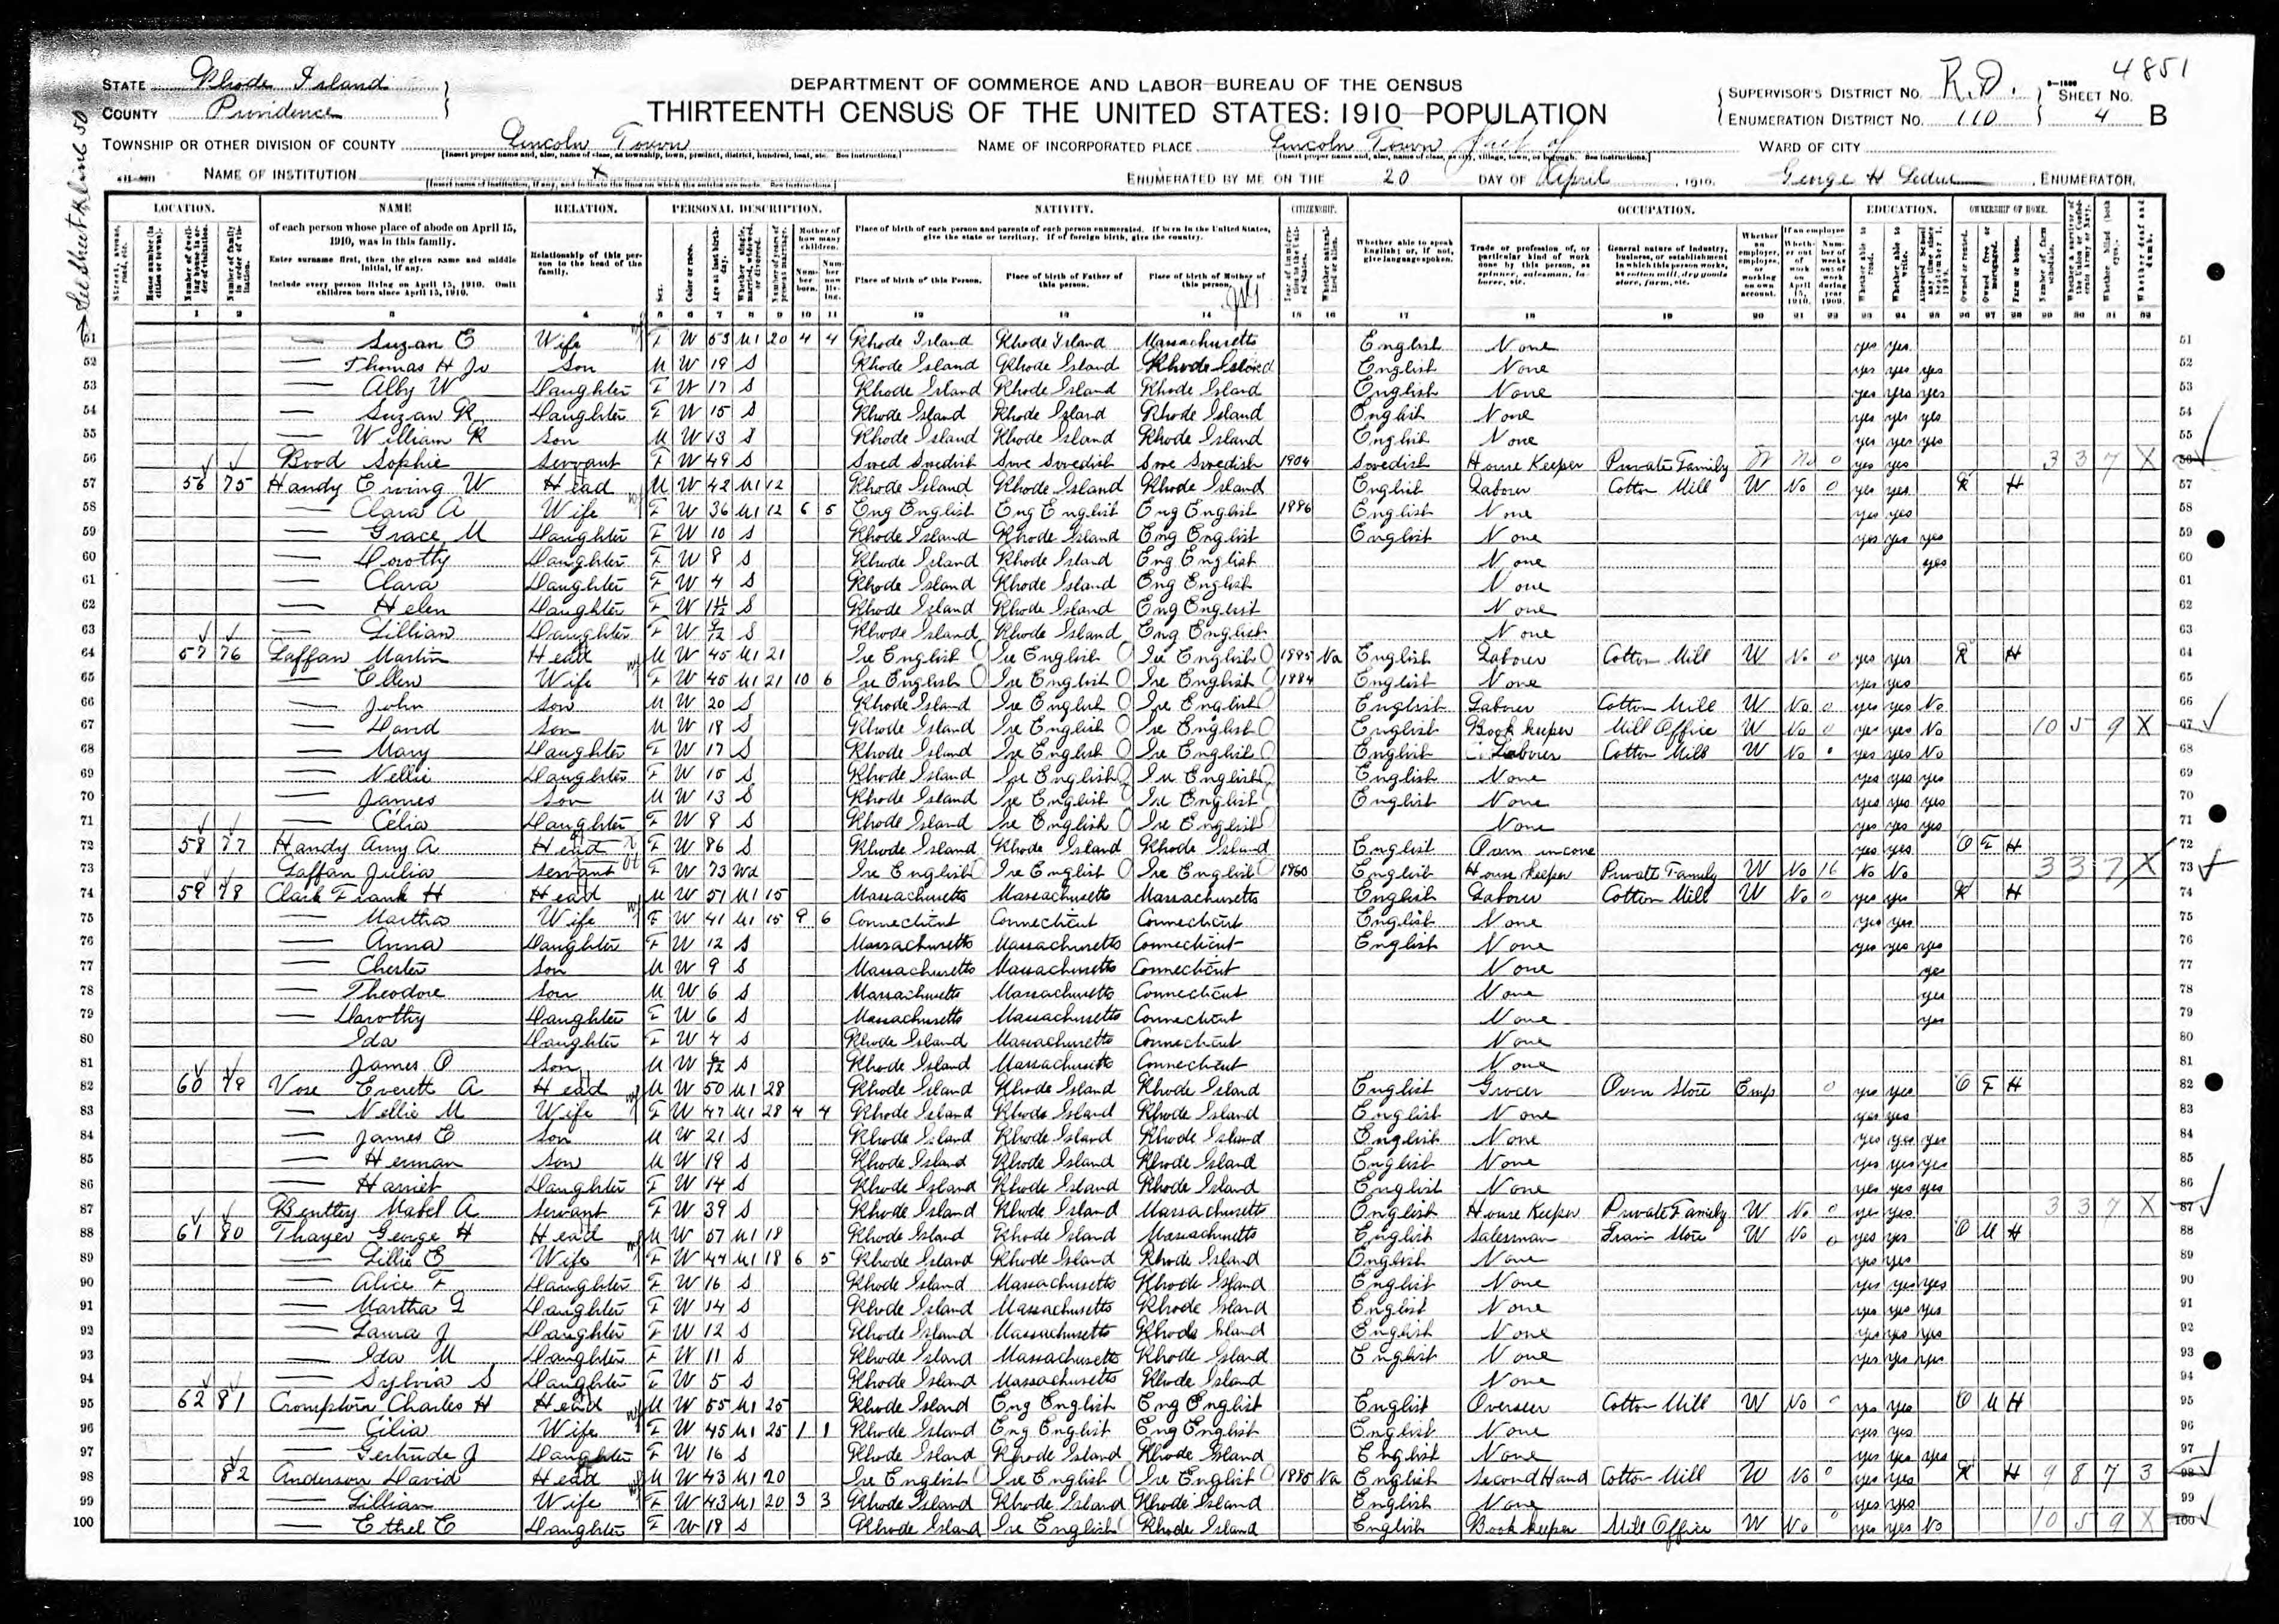 4851
STATE Rhode Island
COUNTY Providence
DEPARTMENT OF COMMERCE AND LABOR—BUREAU OF THE CENSUS
THIRTEENTH CENSUS OF THE UNITED STATES: 1910—POPULATION
SUPERVISOR'S DISTRICT NO. R.D. SHEET NO.
ENUMERATION DISTRICT NO. 110 4 B
TOWNSHIP OR OTHER DIVISION OF COUNTY Lincoln Town NAME OF INCORPORATED PLACE Lincoln Town part of WARD OF CITY
NAME OF INSTITUTION X ENUMERATED BY ME ON THE 20 DAY OF April, 1910. George H Leduc, ENUMERATOR.
LOCATION. NAME RELATION. PERSONAL DESCRIPTION. NATIVITY. CITIZENSHIP. OCCUPATION. EDUCATION. OWNERSHIP OF HOME.
of each person whose place of abode on April 15, 1910, was in this family.
Enter surname first, then the given name and middle initial, if any.
Include every person living on April 15, 1910. Omit children born since April 15, 1910.
Relationship of this person to the head of the family.
Place of birth of each person and parents of each person enumerated. If born in the United States, give the state or territory. If of foreign birth, give the country.
Place of birth of this Person. Place of birth of Father of this person. Place of birth of Mother of this person.
Whether able to speak English; or, if not, give language spoken.
51 — Suzan E Wife F W 53 M1 20 4 4 Rhode Island Rhode Island Massachusetts English None yes yes
52 — Thomas H Jr Son M W 19 S Rhode Island Rhode Island Rhode Island English None yes yes yes
53 — Alby W Daughter F W 17 S Rhode Island Rhode Island Rhode Island English None yes yes yes
54 — Suzan R Daughter F W 15 S Rhode Island Rhode Island Rhode Island English None yes yes yes
55 — William R Son M W 13 S Rhode Island Rhode Island Rhode Island English None yes yes yes
56 Bood Sophie Servant F W 49 S Swed Swedish Swe Swedish Swe Swedish 1904 Swedish House Keeper Private Family W No 0 yes yes 3 3 7 X
57 56 75 Handy Erving W Head M W 42 M1 12 Rhode Island Rhode Island Rhode Island English Laborer Cotton Mill W No 0 yes yes R H
58 — Clara A Wife F W 36 M1 12 6 5 Eng English Eng English Eng English 1886 English None yes yes
59 — Grace M Daughter F W 10 S Rhode Island Rhode Island Eng English English None yes yes yes
60 — Dorothy Daughter F W 8 S Rhode Island Rhode Island Eng English None yes
61 — Clara Daughter F W 4 S Rhode Island Rhode Island Eng English None
62 — Helen Daughter F W S Rhode Island Rhode Island Eng English None
63 — Lillian Daughter F W S Rhode Island Rhode Island Eng English None
64 57 76 Laffan Martin Head M W 45 M1 21 Ire English Ire English Ire English 1885 Na English Laborer Cotton Mill W No 0 yes yes R H
65 — Ellen Wife F W 45 M1 21 10 6 Ire English Ire English Ire English 1884 English None yes yes
66 — John Son M W 20 S Rhode Island Ire English Ire English English Laborer Cotton Mill W No 0 yes yes No
67 — David Son M W 18 S Rhode Island Ire English Ire English English Book keeper Mill Office W No 0 yes yes No 10 5 9 X
68 — Mary Daughter F W 17 S Rhode Island Ire English Ire English English Laborer Cotton Mill W No 0 yes yes No
69 — Nellie Daughter F W 15 S Rhode Island Ire English Ire English English None yes yes yes
70 — James Son M W 13 S Rhode Island Ire English Ire English English None yes yes yes
71 — Celia Daughter F W 8 S Rhode Island Ire English Ire English None yes yes yes
72 58 77 Handy Amy A Head F W 86 S Rhode Island Rhode Island Rhode Island English Own income yes yes O F H
73 Laffan Julia Servant F W 73 Wd Ire English Ire English Ire English 1860 English House keeper Private Family W No 16 No No 3 3 7 X
74 59 78 Clark Frank H Head M W 51 M1 15 Massachusetts Massachusetts Massachusetts English Laborer Cotton Mill W No 0 yes yes R H
75 — Martha Wife F W 41 M1 15 9 6 Connecticut Connecticut Connecticut English None yes yes
76 — Anna Daughter F W 12 S Massachusetts Massachusetts Connecticut English None yes yes yes
77 — Chester Son M W 9 S Massachusetts Massachusetts Connecticut None yes
78 — Theodore Son M W 6 S Massachusetts Massachusetts Connecticut None yes
79 — Dorothy Daughter F W 6 S Massachusetts Massachusetts Connecticut None yes
80 — Ida Daughter F W 4 S Rhode Island Massachusetts Connecticut None
81 — James O Son M W S Rhode Island Massachusetts Connecticut None
82 60 79 Vose Everett A Head M W 50 M1 28 Rhode Island Rhode Island Rhode Island English Grocer Own Store Emp 0 yes yes O F H
83 — Nellie M Wife F W 47 M1 28 4 4 Rhode Island Rhode Island Rhode Island English None yes yes
84 — James E Son M W 21 S Rhode Island Rhode Island Rhode Island English None yes yes yes
85 — Herman Son M W 19 S Rhode Island Rhode Island Rhode Island English None yes yes yes
86 — Harriet Daughter F W 14 S Rhode Island Rhode Island Rhode Island English None yes yes yes
87 Bentley Mabel A Servant F W 39 S Rhode Island Rhode Island Massachusetts English House Keeper Private Family W No 0 yes yes 3 3 7 X
88 61 80 Thayer George H Head M W 57 M1 18 Rhode Island Rhode Island Massachusetts English Salesman Grain Store W No 0 yes yes O M H
89 — Lillie E Wife F W 44 M1 18 6 5 Rhode Island Rhode Island Rhode Island English None yes yes
90 — Alice F Daughter F W 16 S Rhode Island Massachusetts Rhode Island English None yes yes yes
91 — Martha Daughter F W 14 S Rhode Island Massachusetts Rhode Island English None yes yes yes
92 — Laura J Daughter F W 12 S Rhode Island Massachusetts Rhode Island English None yes yes yes
93 — Ida M Daughter F W 11 S Rhode Island Massachusetts Rhode Island English None yes yes yes
94 — Sylvia S Daughter F W 5 S Rhode Island Massachusetts Rhode Island None
95 62 81 Crompton Charles H Head M W 55 M1 25 Rhode Island Eng English Eng English English Overseer Cotton Mill W No 0 yes yes O M H
96 — Cilia Wife F W 45 M1 25 1 1 Rhode Island Eng English Eng English English None yes yes
97 — Gertrude J Daughter F W 16 S Rhode Island Rhode Island Rhode Island English None yes yes yes
98 82 Anderson David Head M W 43 M1 20 Ire English Ire English Ire English 1885 Na English Second Hand Cotton Mill W No 0 yes yes R H 9 8 7 3
99 — Lillian Wife F W 43 M1 20 3 3 Rhode Island Rhode Island Rhode Island English None yes yes
100 — Ethel E Daughter F W 18 S Rhode Island Ire English Rhode Island English Book keeper Mill Office W No 0 yes yes No 10 5 9 X